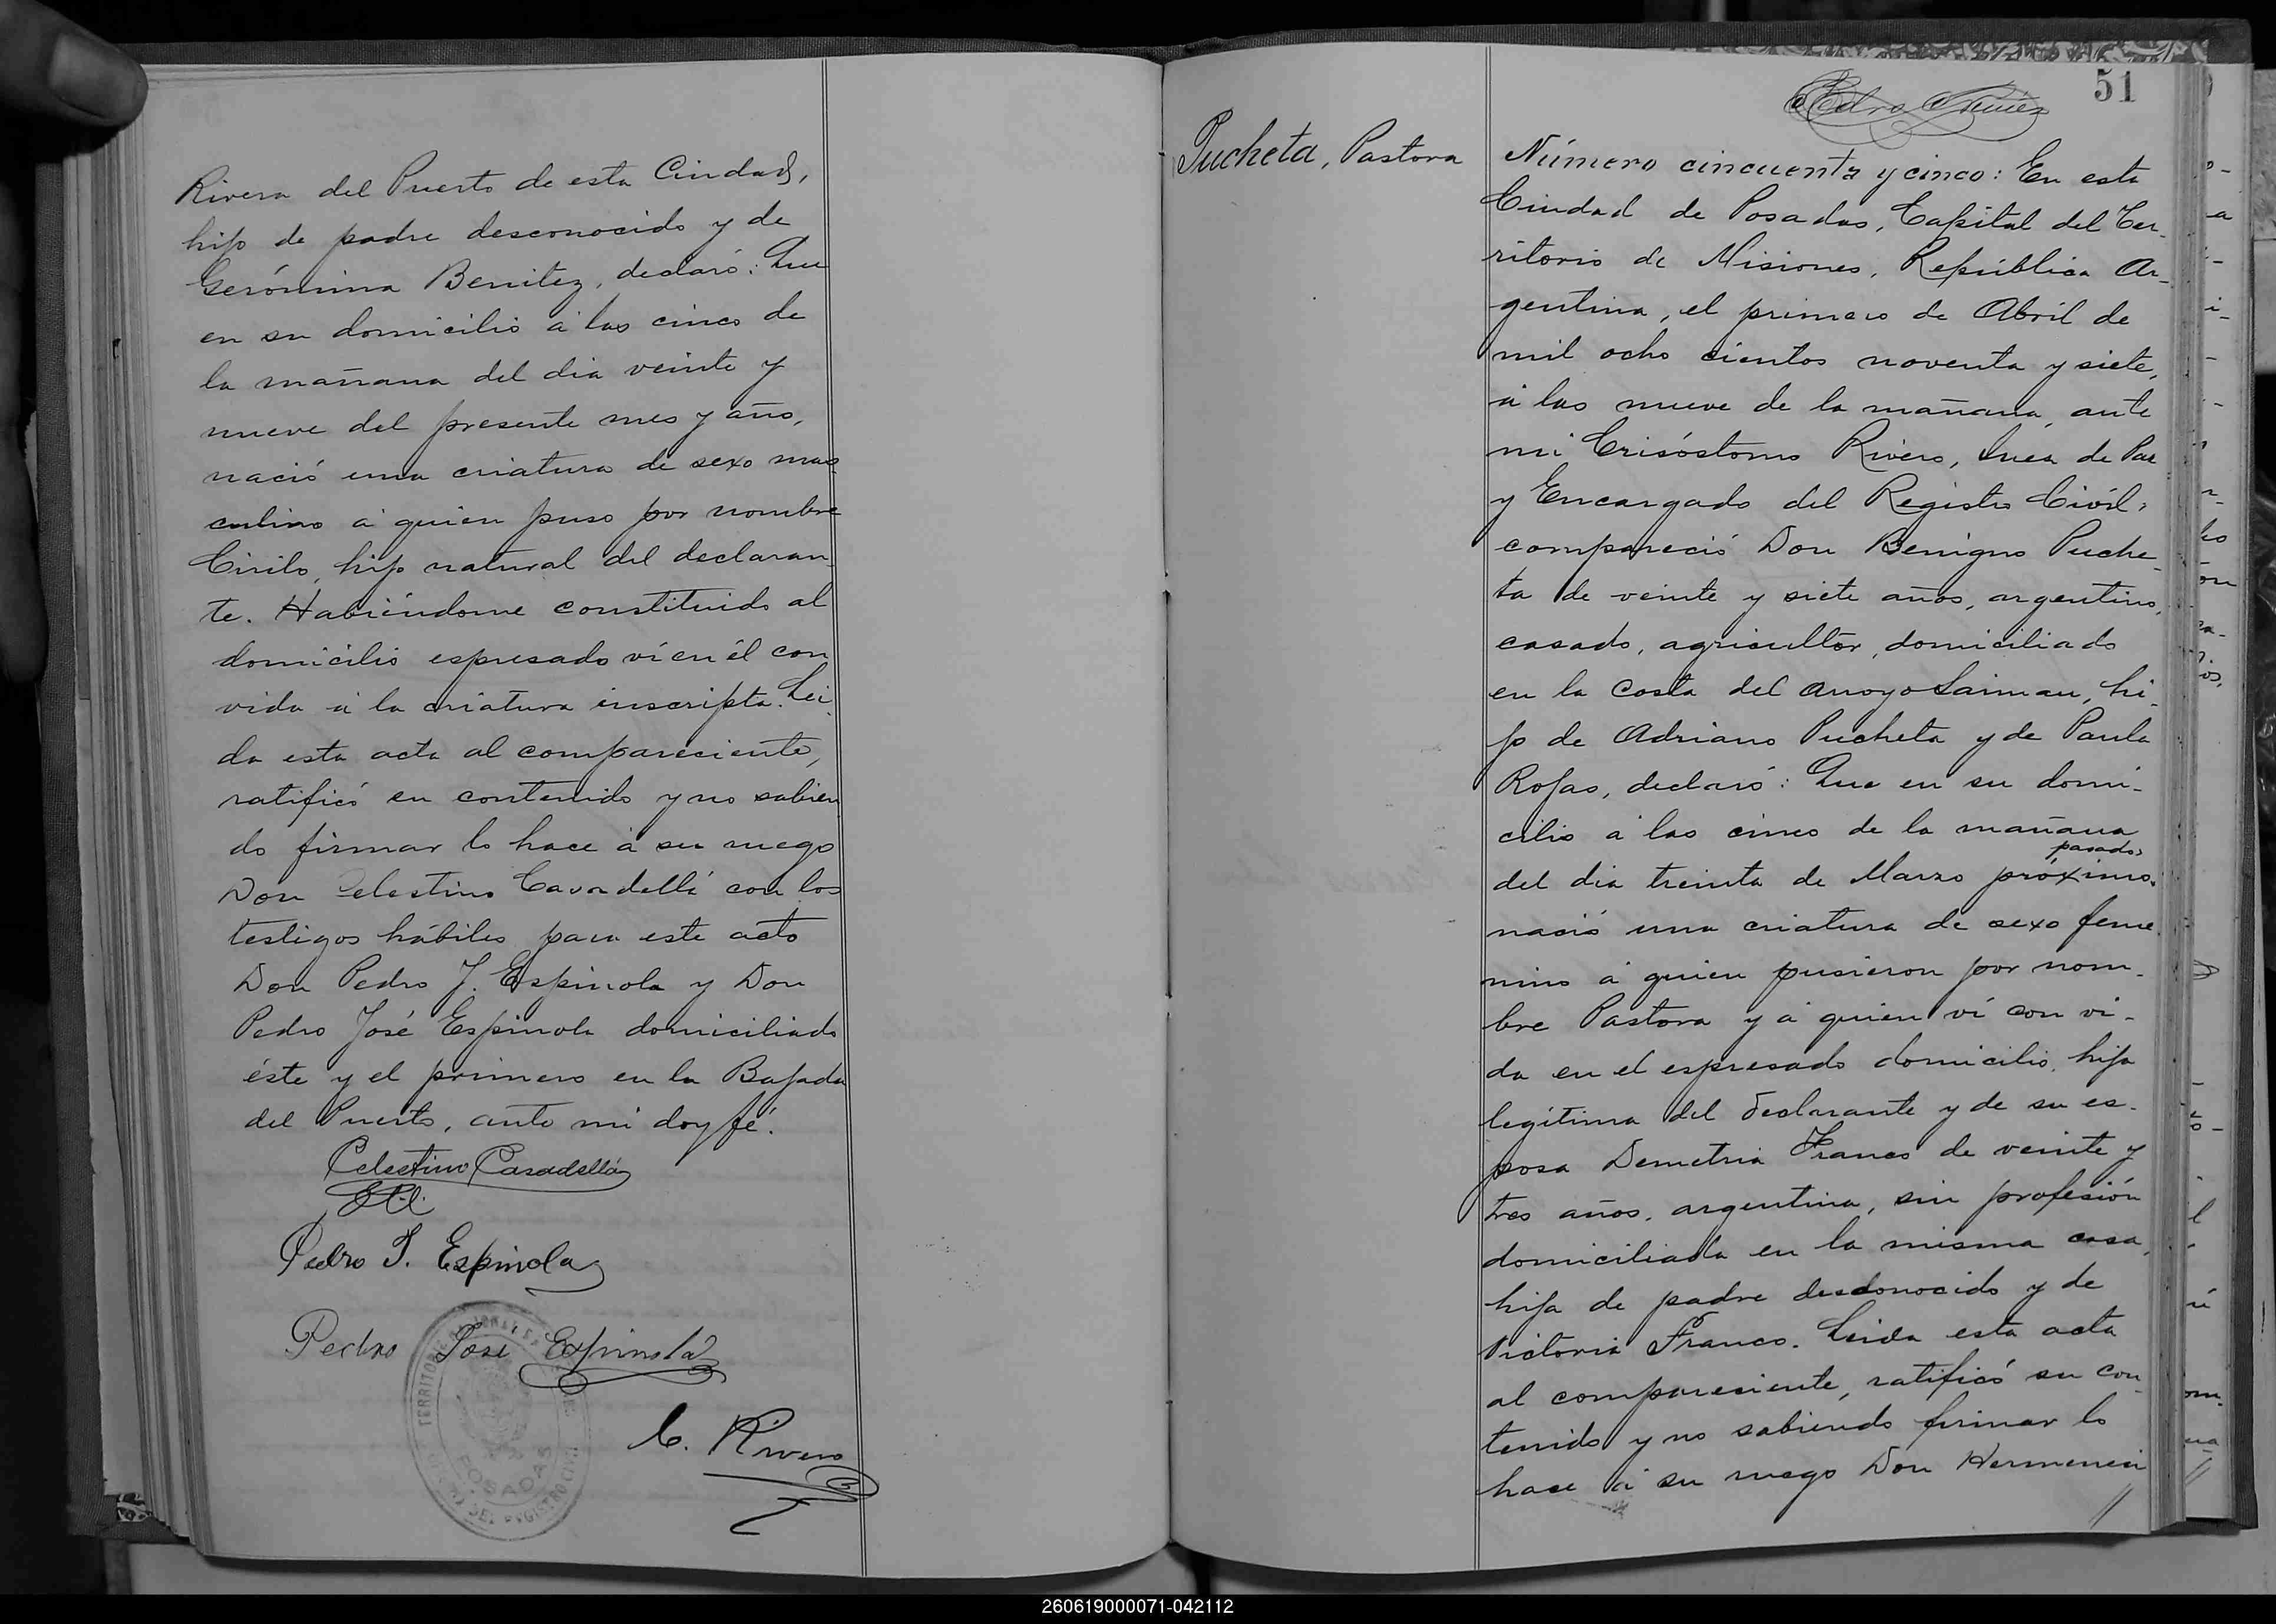 Rivera del Puerto de esta Ciudad,
hijo de padre desconocido y de
Gerónima Benitez, declaró: Que
en su domicilio á las cinco de
la mañana del dia veinte y
nueve del presente mes y año,
nació una criatura de sexo mas
culino á quien puso por nombre
Cirilo, hijo natural del declaran
te. Habiéndome constituido al
domicilio espresado ví en él con
vida á la criatura inscripta. Lei
da esta acta al compareciente,
ratificó en contenido y no sabien
do firmar lo hace á su ruego
Don Celestino Casadellá con los
testigos hábiles para este acto
Don Pedro J. Espinola y Don
Pedro José Espinola domiciliado
éste y el primero en la Bajada
del Puerto, ante mi doy fé.
Celestino Casadellá
Pedro J. Espinola
Pedro José Espinola
C. Rivero
POSADAS
51
Pedro Nuñez
Pucheta, Pastora
Número cincuenta y cinco: En esta
Ciudad de Posadas, Capital del Ter-
ritorio de Misiones, República Ar-
gentina, el primero de Abríl de
mil ocho cientos noventa y siete,
á las nueve de la mañana, ante
mi Crisóstomo Rivero, Juez de Paz
y Encargado del Registro Civíl,
compareció Don Benigno Puche-
ta de veinte y siete años, argentino,
casado, agricultor, domiciliado
en la costa del arroyo Zaiman, hi-
jo de Adriano Pucheta y de Paula
Rojas, declaró: Que en su domi-
cilio á las cinco de la mañana
pasado,
del dia treinta de Marzo próximo
nació una criatura de sexo feme
nino á quien pusieron por nom-
bre Pastora y á quien ví con vi-
da en el espresado domicilio, hija
legítima del declarante y de su es-
posa Demetria Franco de veinte y
tres años, argentina, sin profesión
domiciliada en la misma casa,
hija de padre desconocido y de
Victoria Franco. Leida esta acta
al compareciente, ratificó su con-
tenido y no sabiendo firmar lo
hace á su ruego Don Hermeneji
//
260619000071-042112